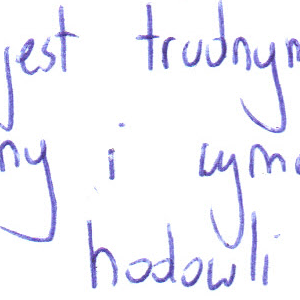 jest trudnym
ny i wyma
hodowli